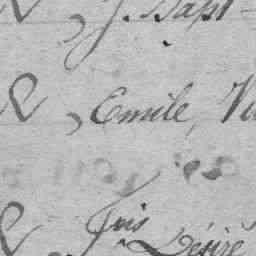 & , J. Bapt
& , Emile, Vi
& Fois Désiré